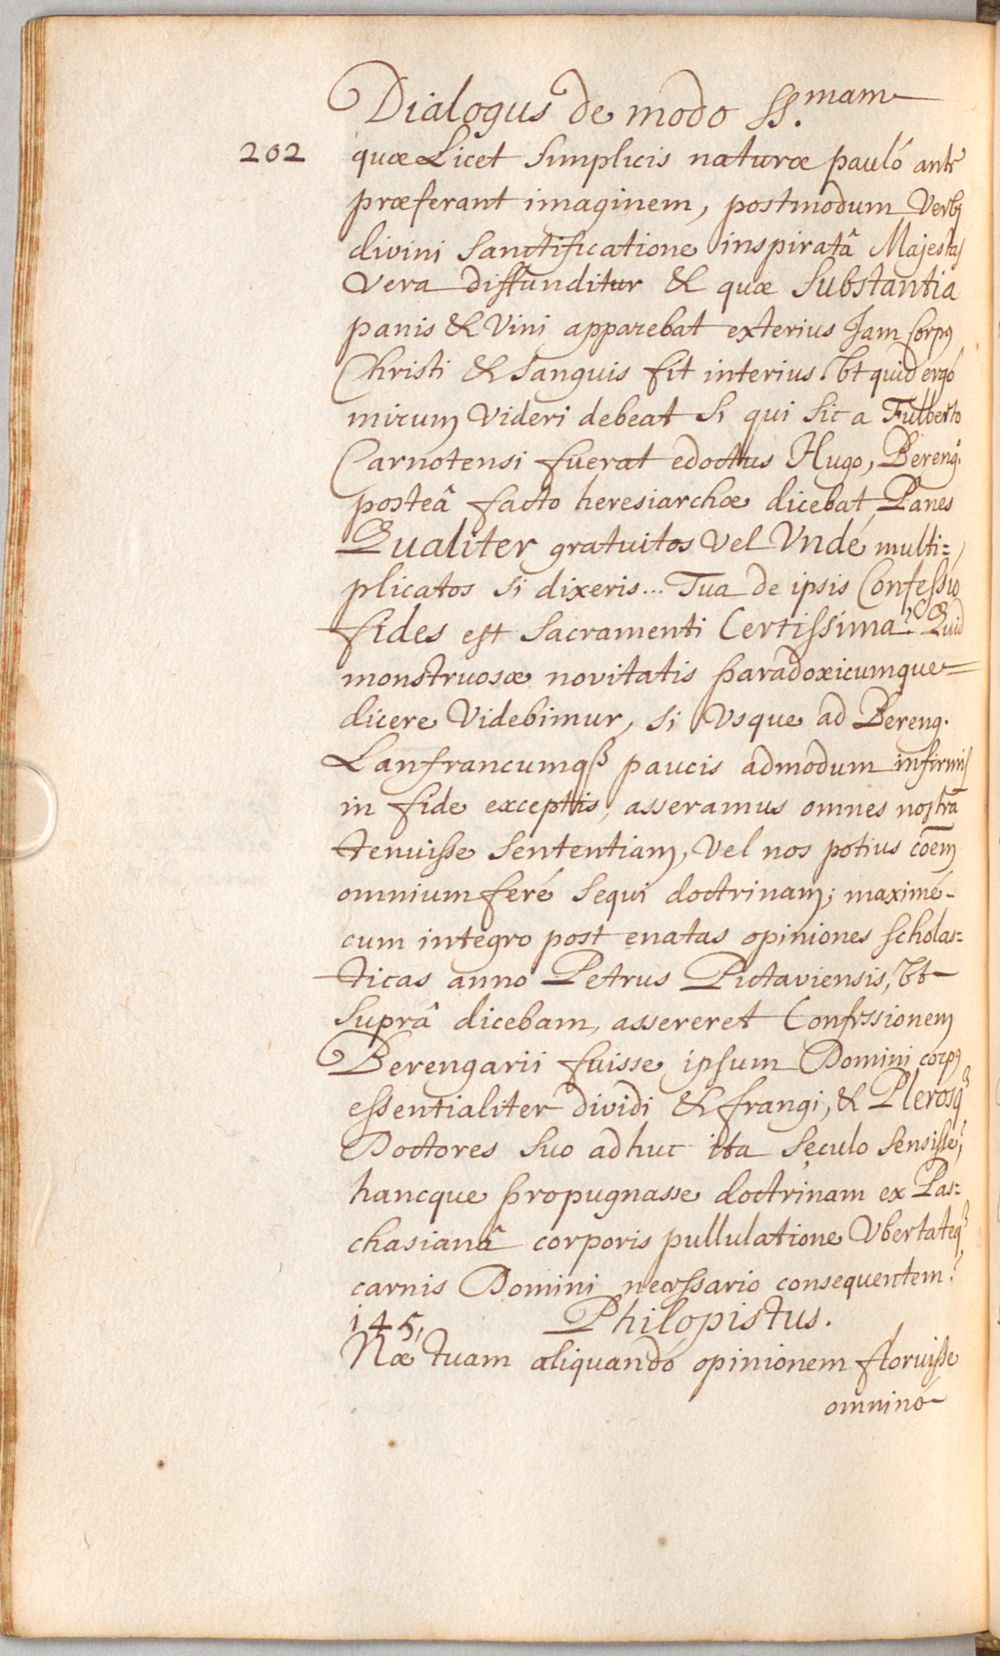 Dialogus de modo SS.mam
202 quæ Licet Simplicis naturæ pauló ante
præferant imaginem, postmodum Verbi
divini Sanctificatione inspiratâ Majestas
Vera diffunditur & quæ Substantia
panis & Vini apparebat exterius Jam Corpus
Christi & Sanguis fit interius Vt quid ergo
mirum Videri debeat Si qui Sic a Fulberto
Carnotensi fuerat edoctus Hugo, Bereng.
posteâ facto heresiarchæ dicebat, Panes
Qualiter gratuitos Vel Vndé multi=
plicatos Si dixeris... Tua de ipsis Confessio
fides est Sacramenti Certissima? Quid
monstruosæ novitatis paradoxicumque=
dicere Videbimur, Si Vsque ad Bereng.
Lanfrancumqꝫ paucis admodum infirmis
in fide exceptis, asseramus omnes nostrā
tenuisse Sententiam, Vel nos potius cōem
omnium feré Sequi doctrinam; maximé
cum integro post enatas opiniones Scholas=
ticas anno Petrus Pictaviensis, Vt
Suprâ dicebam, assereret Confessionem
Berengarii fuisse ipsum Domini corpꝰ
essentialiter dividi & frangi, & Plerosqꝫ
Doctores Suo adhuc ita Sęculo Sensisse,
hancque propugnasse doctrinam ex Pas=
chasianâ corporis pullulatione Vbertateqꝫ
carnis Domini necessario consequentem?
145, Philopistus.
Næ tuam aliquando opinionem floruisse
omninó